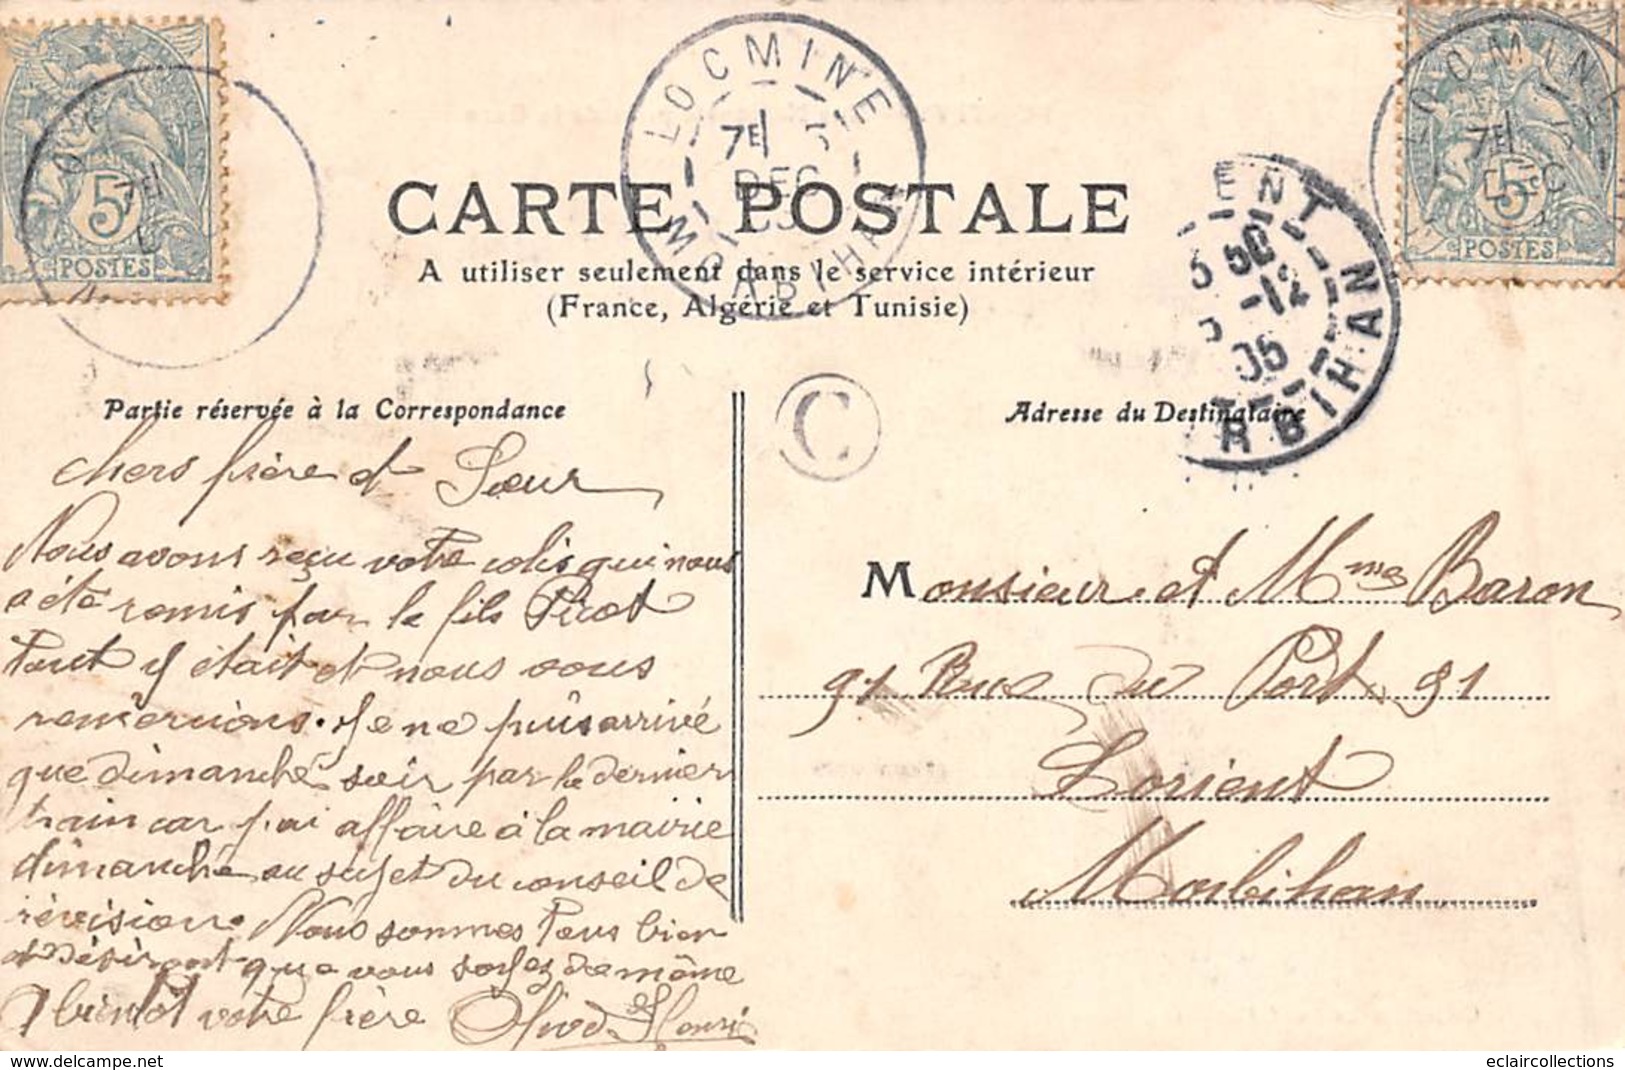 5c
POSTES
LOCMINE
7E 5
DEC
MORBIHAN
5c
POSTES
CARTE POSTALE
A utiliser seulement dans le service intérieur
(France, Algérie et Tunisie)
ENT
50
-12
06
RBIHAN
Partie réservée à la Correspondance
Adresse du Destinataire
C
chers frère et Sœur
Nous avons reçu votre colis qui nous
a été remis par le fils Picot
Tout y était et nous vous
remercions. Je ne puis arrivé
que dimanche soir par le dernier
train car j'ai affaire à la mairie
dimanche au sujet du conseil de
révision. Nous sommes Tous bien
et Désiront que vous soyez de même
A bientôt votre frère
Monsieur et Mme Baron
91 Rue du Port 91
Lorient
Morbihan
delcampe.net
eclaircollections